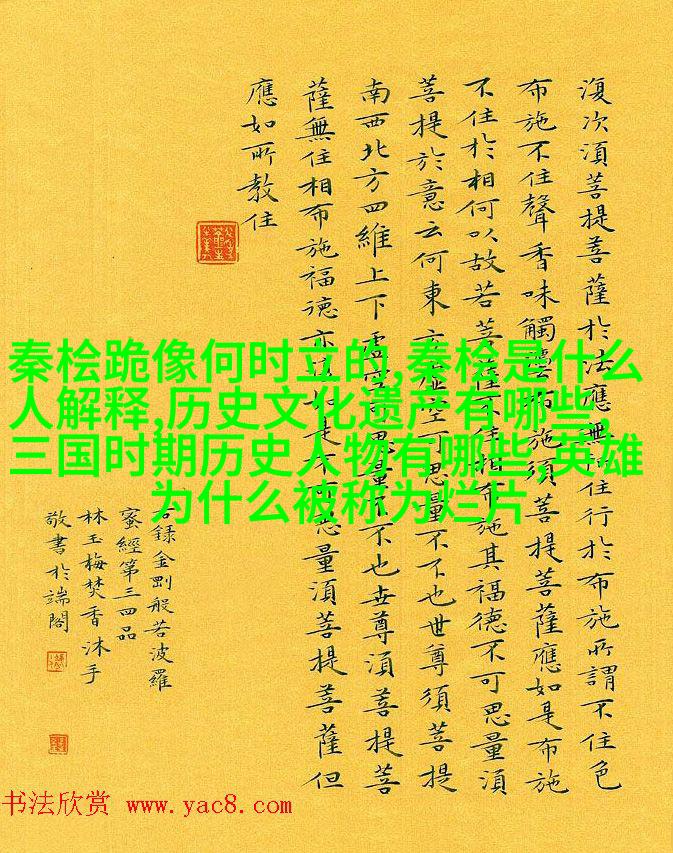 復次湏菩提菩薩於法應無所住行於布施所謂不住色
布施不住聲香味觸法布施須菩提菩薩應如是布施
不住於相何以故若菩薩不住相布施其福德不可思量湏
菩提於意云何東方虛空可思量不不也世尊須菩提
南西北方四維上下虛空可思量不不也世尊湏菩提菩
薩無住相布施福德亦復如是不可思量湏菩提菩薩但
應如所教住
右錄金剛般若波羅
蜜經第三四品
林玉梅焚香沐手
敬書於端閣
秦桧跪像何时立的,秦桧是什么
人解释,历史文化遗产有哪些,
三国时期历史人物有哪些,英雄
为什么被称为烂片
书法欣赏 www.yac8.com